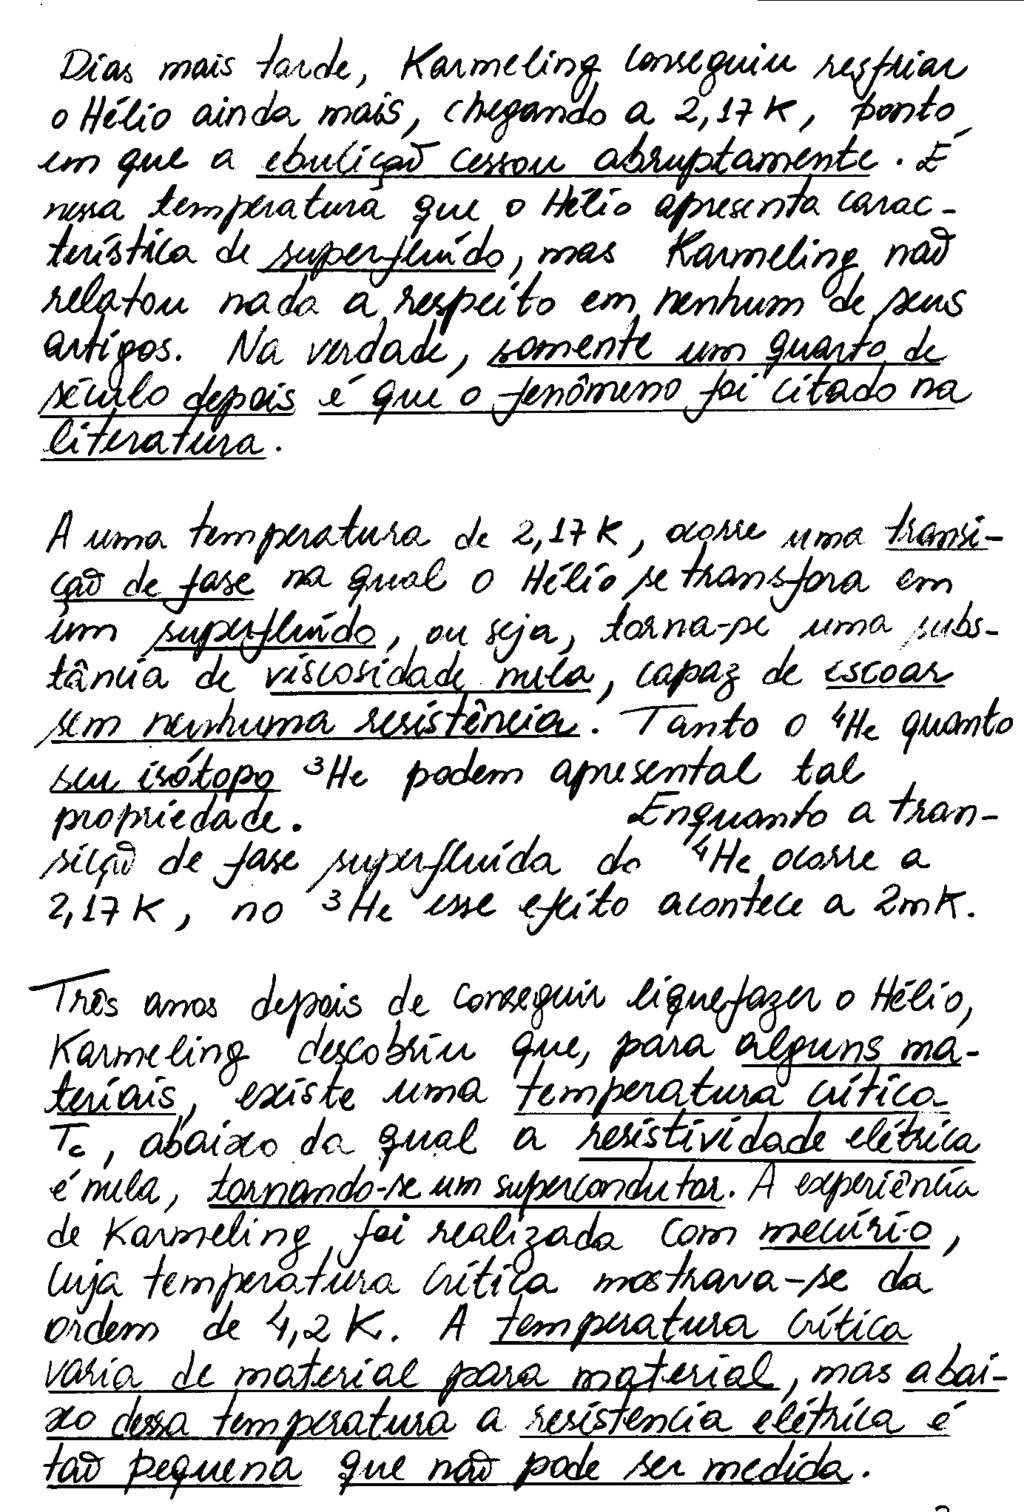 Dias mais tarde, Karmeling conseguiu resfriar
o Hélio ainda mais, chegando a 2,17 K, ponto
em que a ebulição cessou abruptamente. É
nessa temperatura que o Hélio apresenta carac-
terística de superfluído, mas Karmeling não
relatou nada a respeito em nenhum de seus
artigos. Na verdade, somente um quarto de
século depois é que o fenômeno foi citado na
literatura.
A uma temperatura de 2,17 K, ocorre uma transi-
ção de fase na qual o Hélio se transfora em
um superfluído, ou seja, torna-se uma subs-
tância de viscosidade nula, capaz de escoar
sem nenhuma resistência. Tanto o ⁴He quanto
seu isótopo ³He podem apresental tal
propriedade. Enquanto a tran-
sição de fase superfluída do ⁴He ocorre a
2,17 K, no ³He esse efeito acontece a 2mK.
Três anos depois de conseguir liquefazer o Hélio,
Karmeling descobriu que, para alguns ma-
teriais, existe uma temperatura crítica
Tc, abaixo da qual a resistividade elétrica
é nula, tornando-se um supercondutor. A experiência
de Karmeling foi realizada com mecúrio,
cuja temperatura crítica mostrava-se da
ordem de 4,2 K. A temperatura crítica
varia de material para material, mas abai-
xo dessa temperatura a resistencia elétrica é
tão pequena que não pode ser medida.